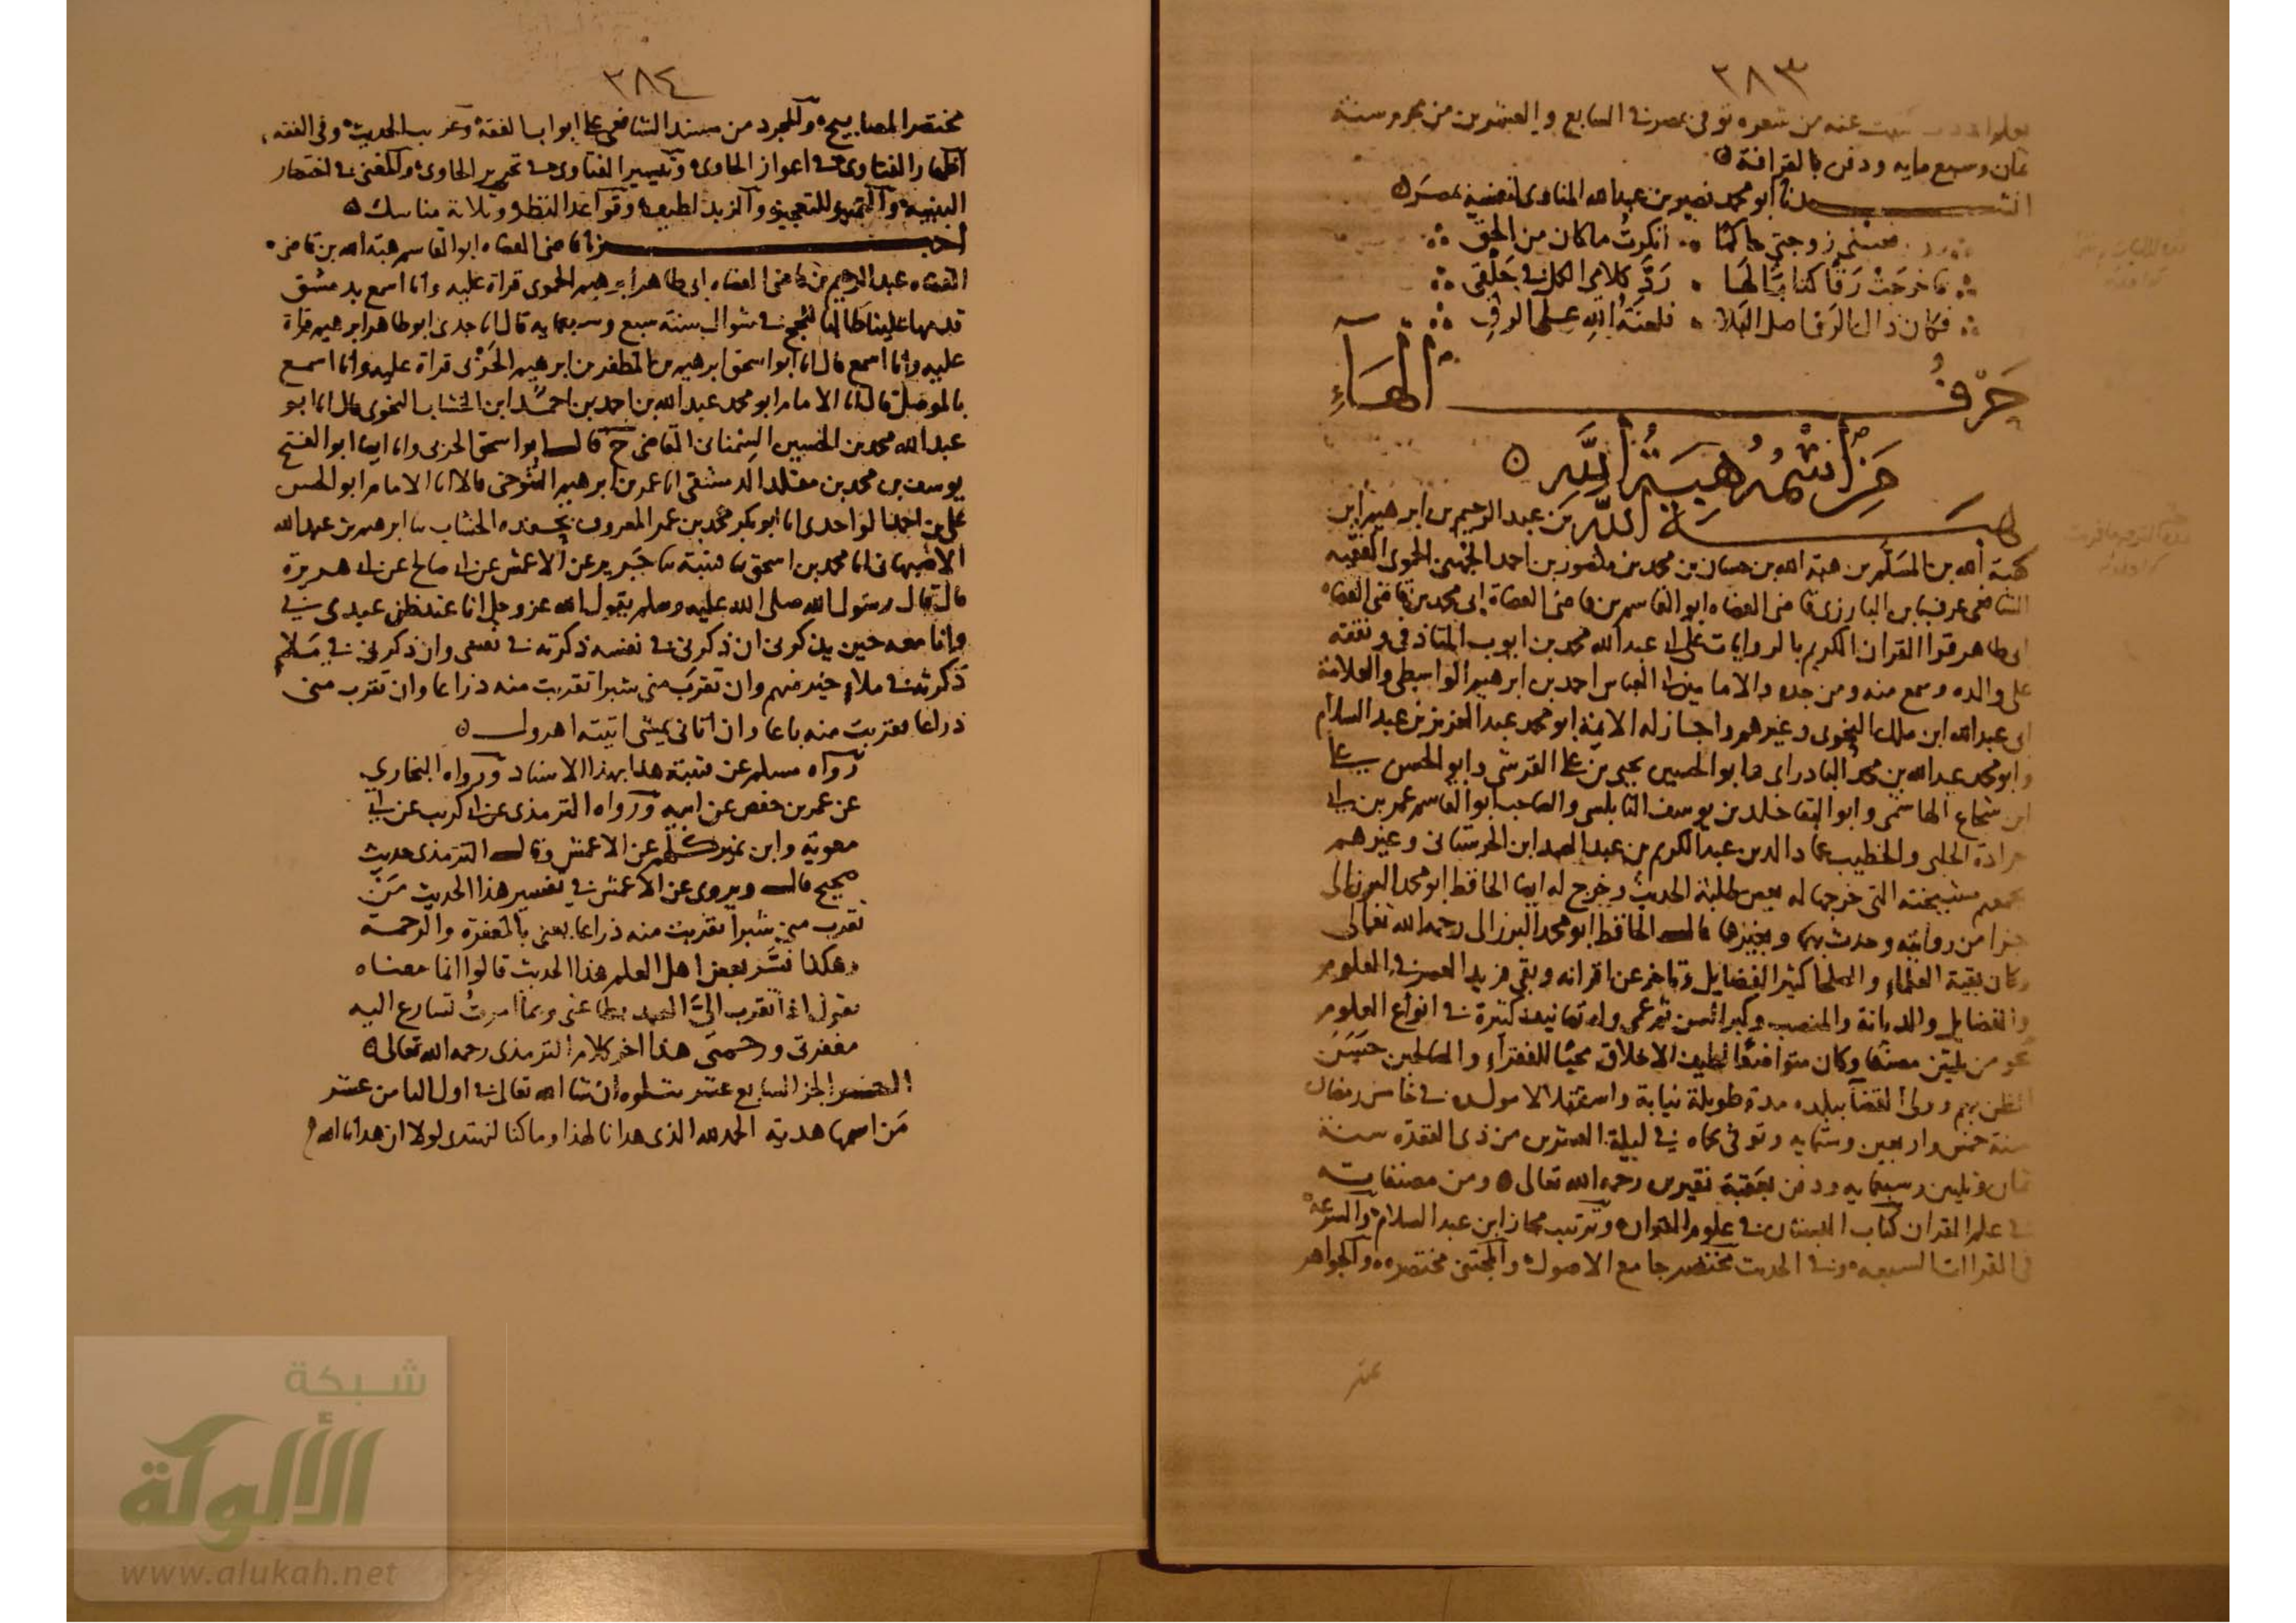 ٢٨٣
عنه من شعره توفى بمصر فى السابع والعشرين من محرم سنة
ثمان وسبع مايه ودفن بالقرافة
انشدنا ابو محمد نصير بن عبد الله المناوى لنفسه بمصر
زوجتى ماكنا انكرت ماكان من الحق
فاخرجت رقا كتابا لها رد كلامى الكل فى حلقى
فكان ذاك الرق اصل البلا فلعنة الله على الرق
حرف الهاء
من اسمه هبة الله
هبة الله بن عبد الرحيم بن ابرهيم ابن
هبة الله بن المسلم بن هبة الله بن حسان بن محمد بن منصور بن احمد الجهنى الحموى الفقيه
الشافعى عرف بابن البارزى قاضى القضاه ابو القاسم بن قاضى القضاة ابى محمد بن قاضى القضاه
ابى طاهر قرا القران الكريم بالروايات على ابى عبد الله محمد بن ايوب التاذفى وتفقه
على والده وسمع منه ومن جده والامامين ابى العباس احمد بن ابرهيم الواسطى والعلامة
ابى عبد الله ابن ملك النحوى وغيرهم واجاز له الايمة ابو محمد عبد العزيز بن عبد السلام
وابو محمد عبد الله بن محمد البادراى وابو الحسين يحيى بن على القرشى وابو الحسن على
ابن شجاع الهاشمى وابو البقا خلد بن يوسف النابلسى والصاحب ابو القاسم عمر بن ابى
جرادة الحلبى والخطيب عماد الدين عبد الكريم بن عبد الصمد ابن الحرستانى وغيرهم
مشيخته التى خرجها له بعض طلبة الحديث وخرج له ايضا الحافظ ابو محمد البرزالى
جزا من روايته وحدث بهما وبغيرها قال الحافظ ابو محمد البرزالى رحمه الله تعالى
وكان بقية العلماء والصلحا كثير الفضايل وتاخر عن اقرانه وبقى فريد العصر فى العلوم
والفضايل والديانة والمنصب وكبر السن ثم عمى وله تصانيف كثيرة فى انواع العلوم
نحو من ثلثين مصنفا وكان متواضعا لطيف الاخلاق محبا للفقراء والصالحين حسن
الظن بهم وولى القضا ببلده مدة طويلة نيابة واستقلالا مولده فى خامس رمضان
سنة خمس واربعين وستمايه وتوفى بحماه فى ليلة العشرين من ذى القعده سنة
ثمان وثلثين وسبعمايه ودفن بعقبة نقيرين رحمه الله تعالى ومن مصنفاته
فى علم القران كتاب البستان فى علوم القران وترتيب مجاز ابن عبد السلام والشرعة
فى القراات السبعه وفى الحديث مختصر جامع الاصول والمجتبى مختصره والجواهر
٢٨٤
مختصر المصابيح والمجرد من مسند الشافعى على ابواب الفقه وغريب الحديث وفى الفقه
اظهار الفتاوى فى اعواز الحاوى وتيسير الفتاوى فى تحرير الحاوى والمغنى فى اختصار
التنبيه والتمييز للتعجيز والزبد لطيف وقواعد النظر وثلاثة مناسك
اخبرنا قاضى القضاه ابو القاسم هبة الله بن قاضى
القضاه عبد الرحيم بن قاضى القضاه ابى طاهر ابرهيم الحموى قراة عليه وانا اسمع بدمشق
قدمها علينا طالبا للحج فى شوال سنة سبع وسبعمايه قال انا جدى ابو طاهر ابرهيم قراة
عليه وانا اسمع قال انا ابو اسحق ابرهيم بن المظفر بن ابرهيم الحربى قراة عليه وانا اسمع
بالموصل قال انا الامام ابو محمد عبد الله بن احمد بن احمد ابن الخشاب النحوى قال انا ابو
عبد الله محمد بن الحسين السمنانى القاضى ح قال ابو اسحق الحربى وانا ايضا ابو الفتح
يوسف بن محمد بن مقلد الدمشقى انا عمر بن ابرهيم التنوخى قالا انا الامام ابو الحسن
على بن احمد الواحدى انا ابو بكر محمد بن عمر المعروف الخشاب نا ابرهيم بن عبد الله
الاصبهانى انا محمد بن اسحق نا قتيبة نا جرير عن الاعمش عن ابى صالح عن ابى هريرة
قال قال رسول الله صلى الله عليه وسلم يقول الله عز وجل انا عند ظن عبدى بى
وانا معه حين يذكرنى ان ذكرنى فى نفسه ذكرته فى نفسى وان ذكرنى فى ملاء
ذكرته فى ملاء خير منهم وان تقرب منى شبرا تقربت منه ذراعا وان تقرب منى
ذراعا تقربت منه باعا وان اتانى يمشى اتيته اهرول
رواه مسلم عن قتيبة هذا بهذا الاسناد ورواه البخارى
عن عمر بن حفص عن ابيه ورواه الترمذى عن ابى كريب عن ابى
معوية وابن نمير كلهم عن الاعمش وقال الترمذى حديث
صحيح قال ويروى عن الاعمش فى تفسير هذا الحديث من
تقرب منى شبرا تقربت منه ذراعا يعنى بالمغفرة والرحمة
وهكذا فسر بعض اهل العلم هذا الحديث قالوا انما معناه
يقول اذا تقرب الى العبد بطاعتى وبما امرت تسارع اليه
مغفرتى ورحمتى هذا اخر كلام الترمذى رحمه الله تعالى
اخر الجز السابع عشر يتلوه ان شا الله تعالى فى اول الثامن عشر
من اسمها هدية الحمد لله الذى هدانا لهذا وما كنا لنهتدى لولا ان هدانا الله
شبكة
الألوكة
www.alukah.net